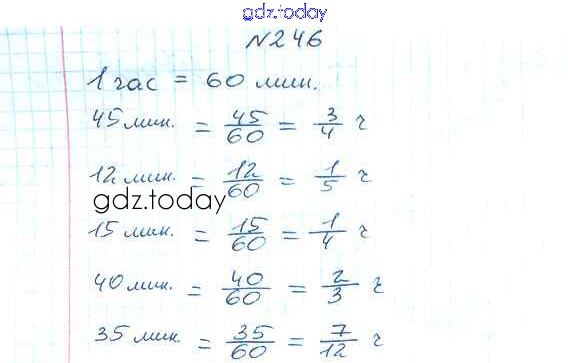 gdz.today
№246
1 час = 60 мин.
45 мин. = 45/60 = 3/4 ч
12 мин. = 12/60 = 1/5 ч
gdz.today
15 мин. = 15/60 = 1/4 ч
40 мин. = 40/60 = 2/3 ч
35 мин. = 35/60 = 7/12 ч